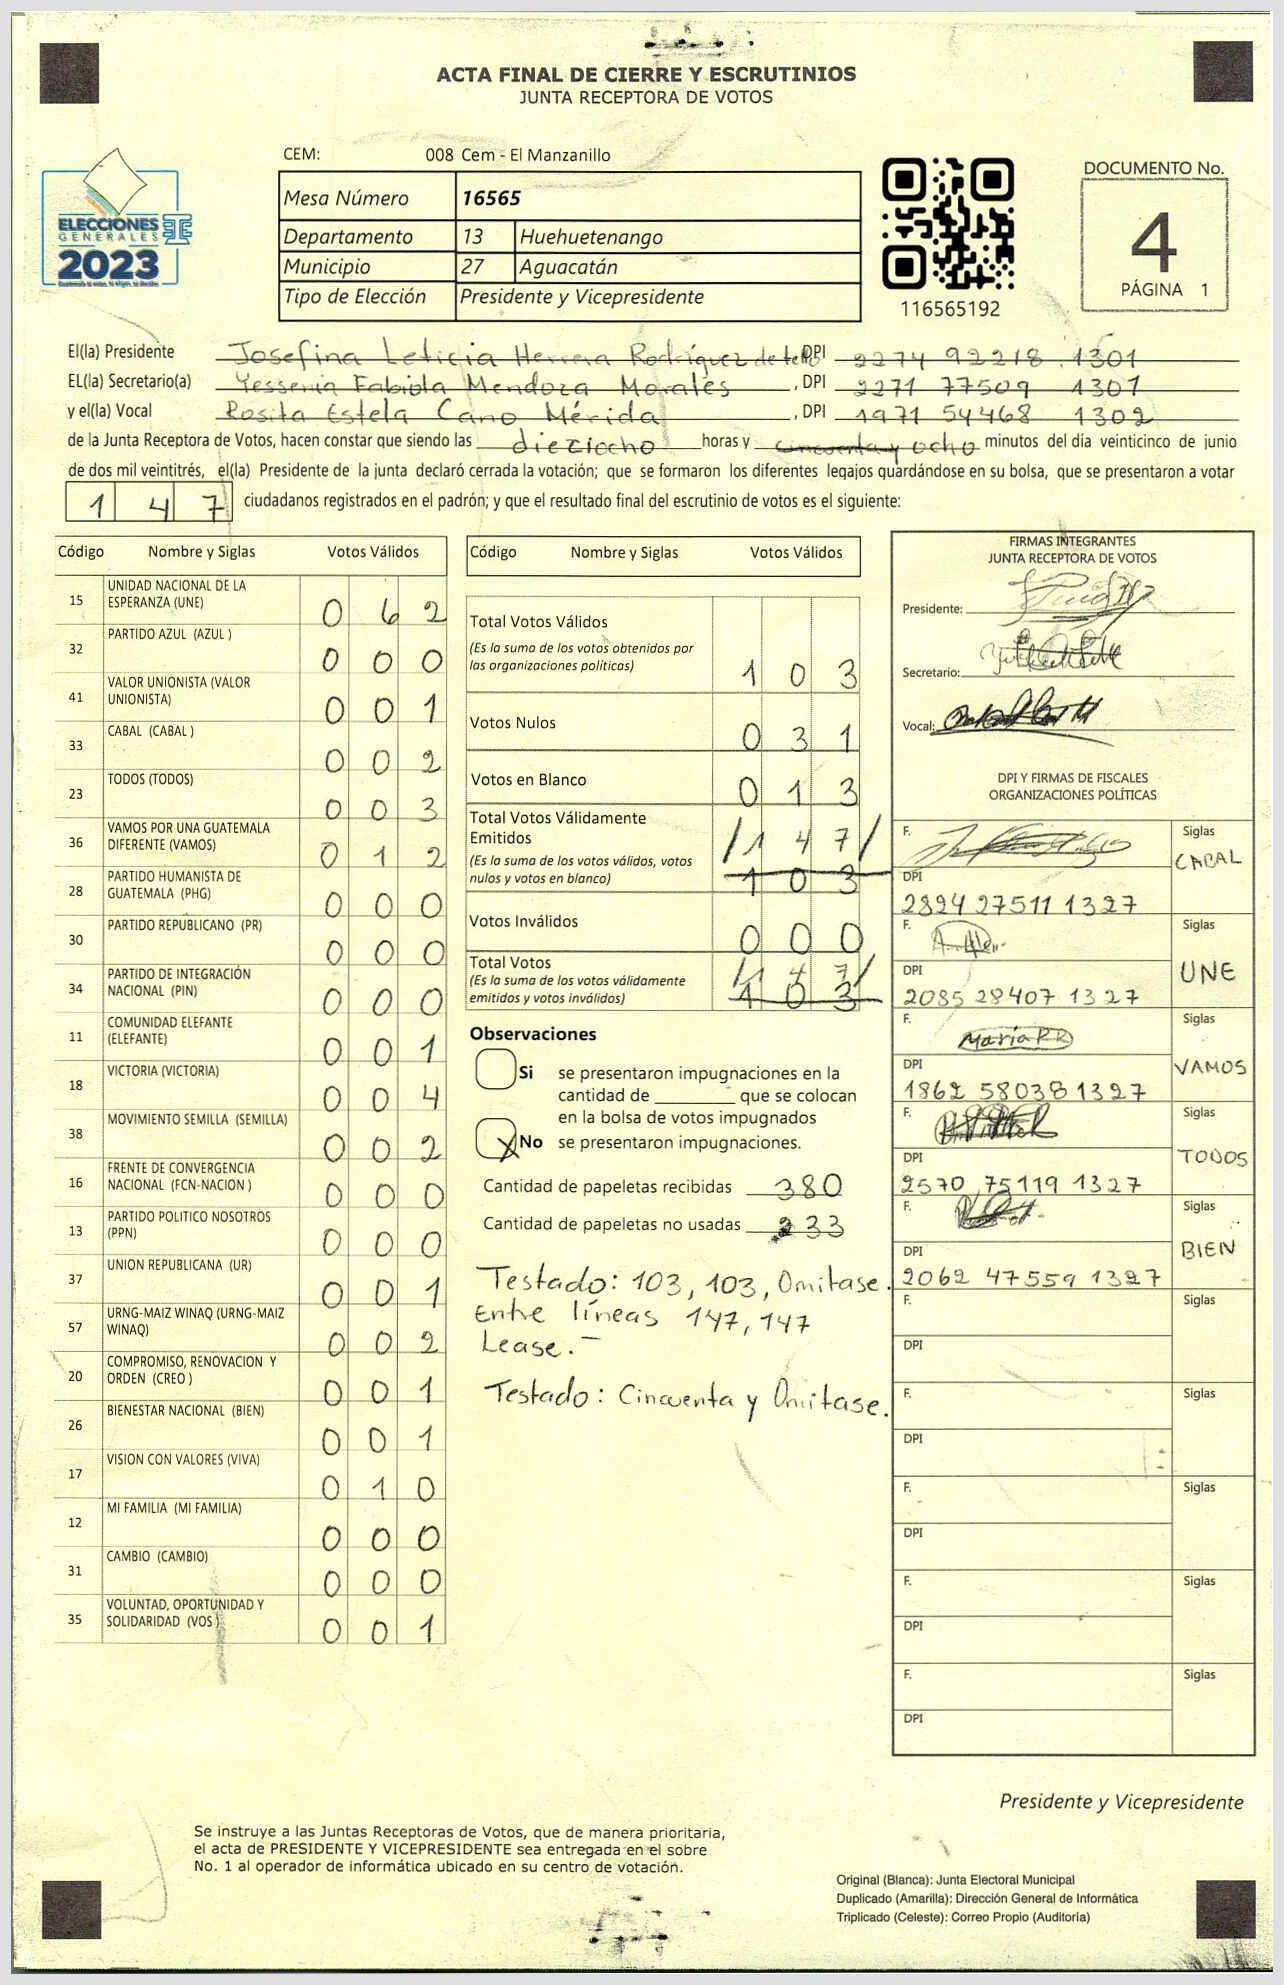 ACTA FINAL DE CIERRE Y ESCRUTINIOS
JUNTA RECEPTORA DE VOTOS
CEM: 008 Cem - El Manzanillo
Mesa Número 16565
Departamento 13 Huehuetenango
Municipio 27 Aguacatán
Tipo de Elección Presidente y Vicepresidente
ELECCIONES
GENERALES
2023
116565192
DOCUMENTO No.
4
PÁGINA 1
El(la) Presidente Josefina Leticia Herrera Rodríguez de tello DPI 2274 92218 1301
EL(la) Secretario(a) Yessenia Fabiola Mendoza Morales, DPI 2271 77509 1301
y el(la) Vocal Rosita Estela Cano Mérida, DPI 1971 54468 1302
de la Junta Receptora de Votos, hacen constar que siendo las dieciocho horas y cincuenta y ocho minutos del día veinticinco de junio
de dos mil veintitrés, el(la) Presidente de la junta declaró cerrada la votación; que se formaron los diferentes legajos guardándose en su bolsa, que se presentaron a votar
1 4 7 ciudadanos registrados en el padrón; y que el resultado final del escrutinio de votos es el siguiente:
Código Nombre y Siglas Votos Válidos
15 UNIDAD NACIONAL DE LA
ESPERANZA (UNE) 0 6 2
32 PARTIDO AZUL (AZUL ) 0 0 0
41 VALOR UNIONISTA (VALOR
UNIONISTA) 0 0 1
33 CABAL (CABAL ) 0 0 2
23 TODOS (TODOS) 0 0 3
36 VAMOS POR UNA GUATEMALA
DIFERENTE (VAMOS) 0 1 2
28 PARTIDO HUMANISTA DE
GUATEMALA (PHG) 0 0 0
30 PARTIDO REPUBLICANO (PR) 0 0 0
34 PARTIDO DE INTEGRACIÓN
NACIONAL (PIN) 0 0 0
11 COMUNIDAD ELEFANTE
(ELEFANTE) 0 0 1
18 VICTORIA (VICTORIA) 0 0 4
38 MOVIMIENTO SEMILLA (SEMILLA) 0 0 2
16 FRENTE DE CONVERGENCIA
NACIONAL (FCN-NACION ) 0 0 0
13 PARTIDO POLITICO NOSOTROS
(PPN) 0 0 0
37 UNION REPUBLICANA (UR) 0 0 1
57 URNG-MAIZ WINAQ (URNG-MAIZ
WINAQ) 0 0 2
20 COMPROMISO, RENOVACION Y
ORDEN (CREO ) 0 0 1
26 BIENESTAR NACIONAL (BIEN) 0 0 1
17 VISION CON VALORES (VIVA) 0 1 0
12 MI FAMILIA (MI FAMILIA) 0 0 0
31 CAMBIO (CAMBIO) 0 0 0
35 VOLUNTAD, OPORTUNIDAD Y
SOLIDARIDAD (VOS ) 0 0 1
Código Nombre y Siglas Votos Válidos
Total Votos Válidos
(Es la suma de los votos obtenidos por
las organizaciones políticas) 1 0 3
Votos Nulos 0 3 1
Votos en Blanco 0 1 3
Total Votos Válidamente
Emitidos /1 4 7/
(Es la suma de los votos válidos, votos
nulos y votos en blanco) 1 0 3
Votos Inválidos 0 0 0
Total Votos /1 4 7/
(Es la suma de los votos válidamente
emitidos y votos inválidos) 1 0 3
Observaciones
Si se presentaron impugnaciones en la
cantidad de ________ que se colocan
en la bolsa de votos impugnados
X No se presentaron impugnaciones.
Cantidad de papeletas recibidas 380
Cantidad de papeletas no usadas 233
Testado: 103, 103, Omitase.
Entre líneas 147, 147
Lease.-
Testado: Cincuenta y Omitase.
FIRMAS INTEGRANTES
JUNTA RECEPTORA DE VOTOS
Presidente:
Secretario:
Vocal:
DPI Y FIRMAS DE FISCALES
ORGANIZACIONES POLÍTICAS
F. Siglas
CABAL
DPI
2824 27511 1327
F. Siglas
UNE
DPI
2085 28407 1327
F. María R.R Siglas
VAMOS
DPI
1862 58038 1327
F. Siglas
TODOS
DPI
2570 75119 1327
F. Siglas
BIEN
DPI
2062 47559 1327
F. Siglas
DPI
F. Siglas
DPI
F. Siglas
DPI
F. Siglas
DPI
F. Siglas
DPI
Presidente y Vicepresidente
Se instruye a las Juntas Receptoras de Votos, que de manera prioritaria,
el acta de PRESIDENTE Y VICEPRESIDENTE sea entregada en el sobre
No. 1 al operador de informática ubicado en su centro de votación.
Original (Blanca): Junta Electoral Municipal
Duplicado (Amarilla): Dirección General de Informática
Triplicado (Celeste): Correo Propio (Auditoría)